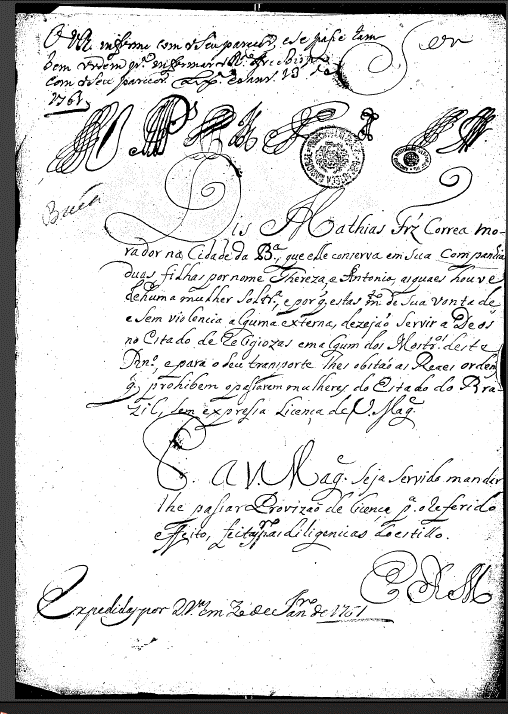 O V.R. informe com o seu parecer, e se passe tam
bem ordem p.ª informar o R.do Arcebispo
com o seu parecer. Lx.ª 13 de
1761
Ser
Bahia
Dis Mathias Frz Correa mo-
rador na Cidade da B.ª, que elle conserva em sua companhia
duas filhas por nome Thereza, e Antonia, as quaes houve
de huma mulher soltr.ª, e porq̃ estas tm̃ de sua vontade
e sem violencia alguma externa, dezejaõ servir a Deos
no Estado de Religiozas em algum dos Mostr.os deste
Rn.º, e para o seu transporte lhes obstaõ as Reaes ordens
q̃ prohibem o passarem mulheres do Estado do Bra-
zil, sem expressa Licença de V. Mag.e
P. a V. Mag.e seja servido mandar
lhe passar Provizaõ de licença p.ª o referido
effeito, feitas as diligencias do estillo.
E R M
Expedidas por 2 V.as em 20 de Janr.º de 1761